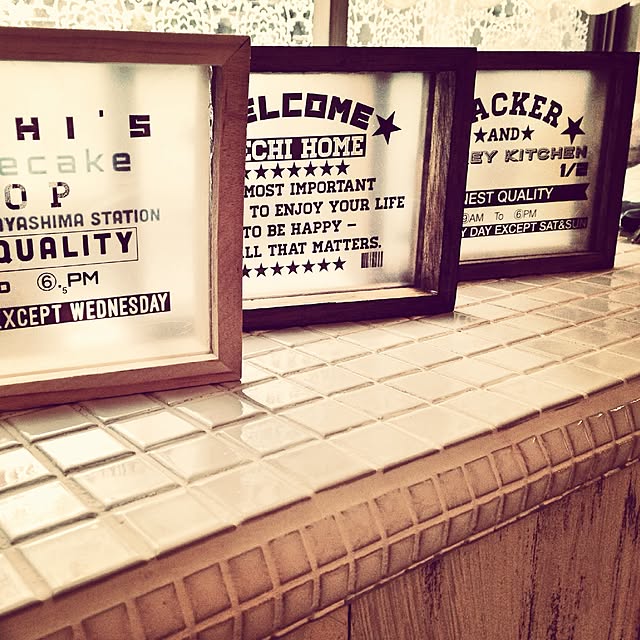 HI'S
ecake
OP
YASHIMA STATION
QUALITY
6.5 PM
XCEPT WEDNESDAY
ELCOME
ECHI HOME
MOST IMPORTANT
TO ENJOY YOUR LIFE
TO BE HAPPY –
LL THAT MATTERS.
ACKER
AND
EY KITCHEN
1/2
NEST QUALITY
9 AM To 6 PM
Y DAY EXCEPT SAT&SUN